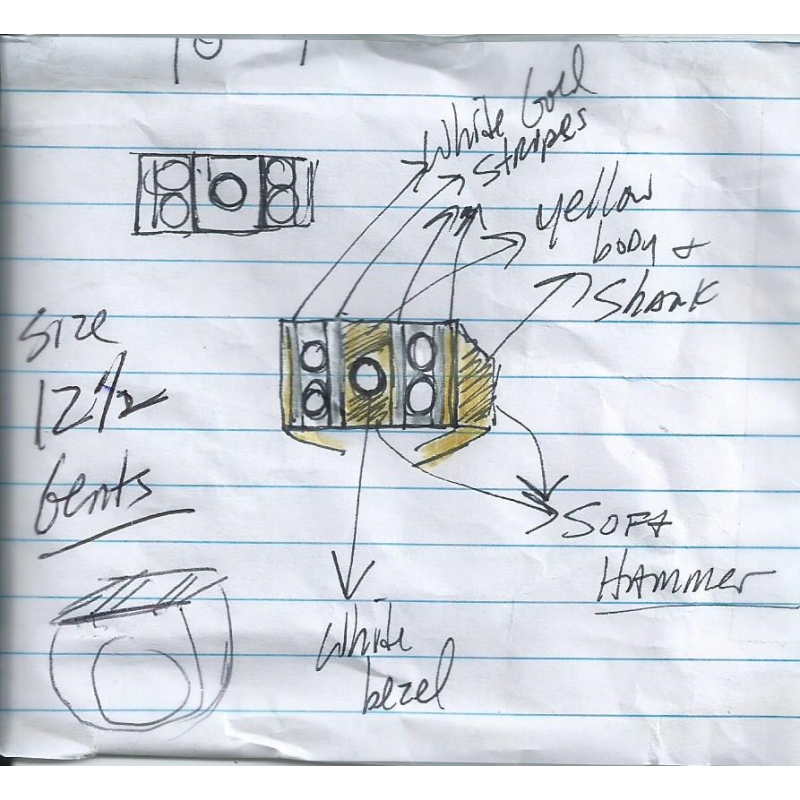 White Gold
Stripes
yellow
body &
Shank
Size
12 1/2
Gents
Soft
Hammer
White
bezel